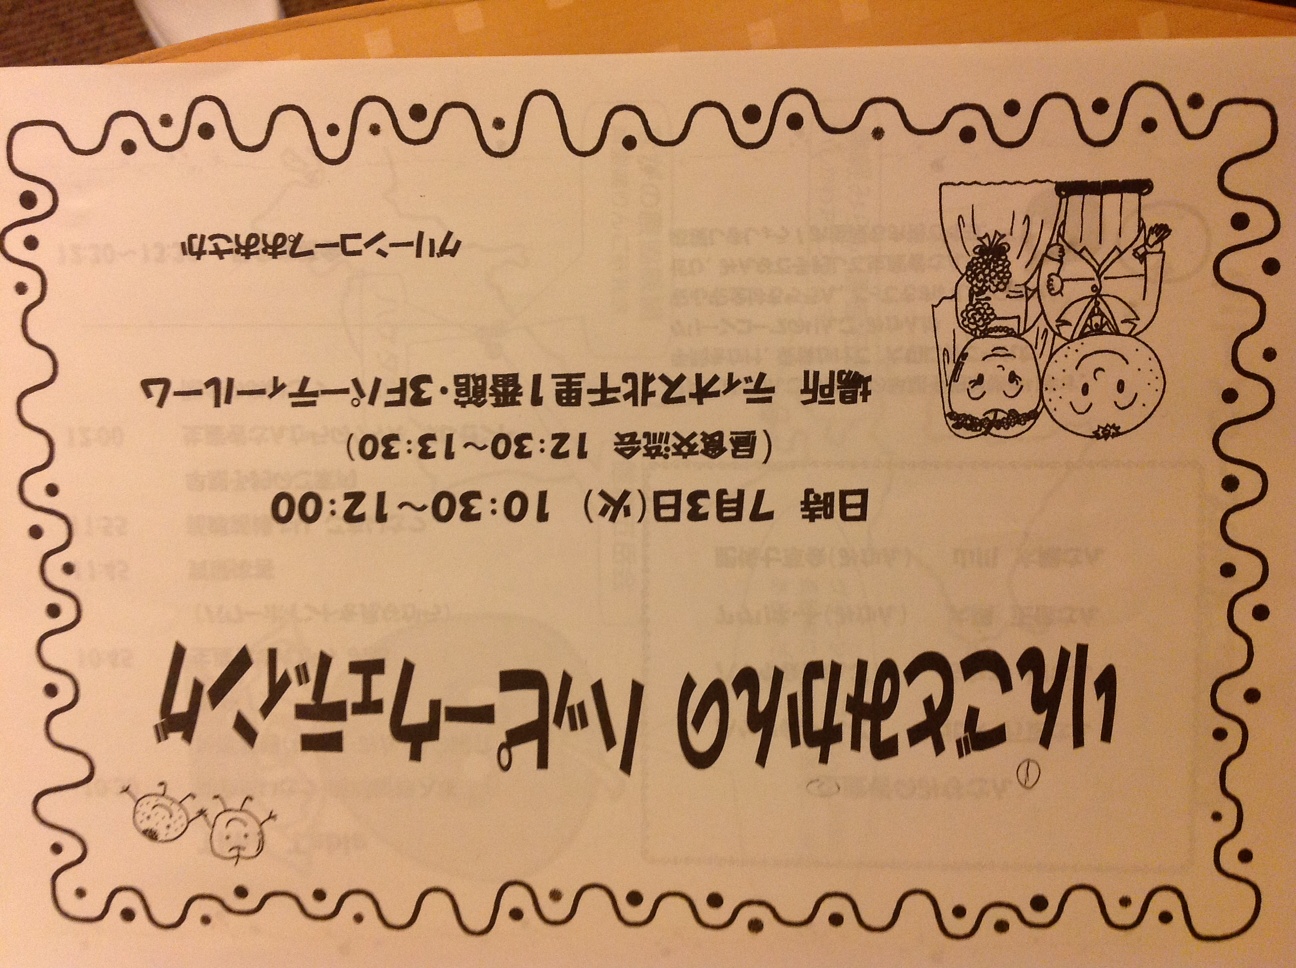 りんごとみかんの ハッピーウェディング
日時 7月3日(火) 10:30～12:00
(昼食交流会 12:30～13:30)
場所 ディオス北千里1番館・3Fパーティールーム
グリーンコープおおさか